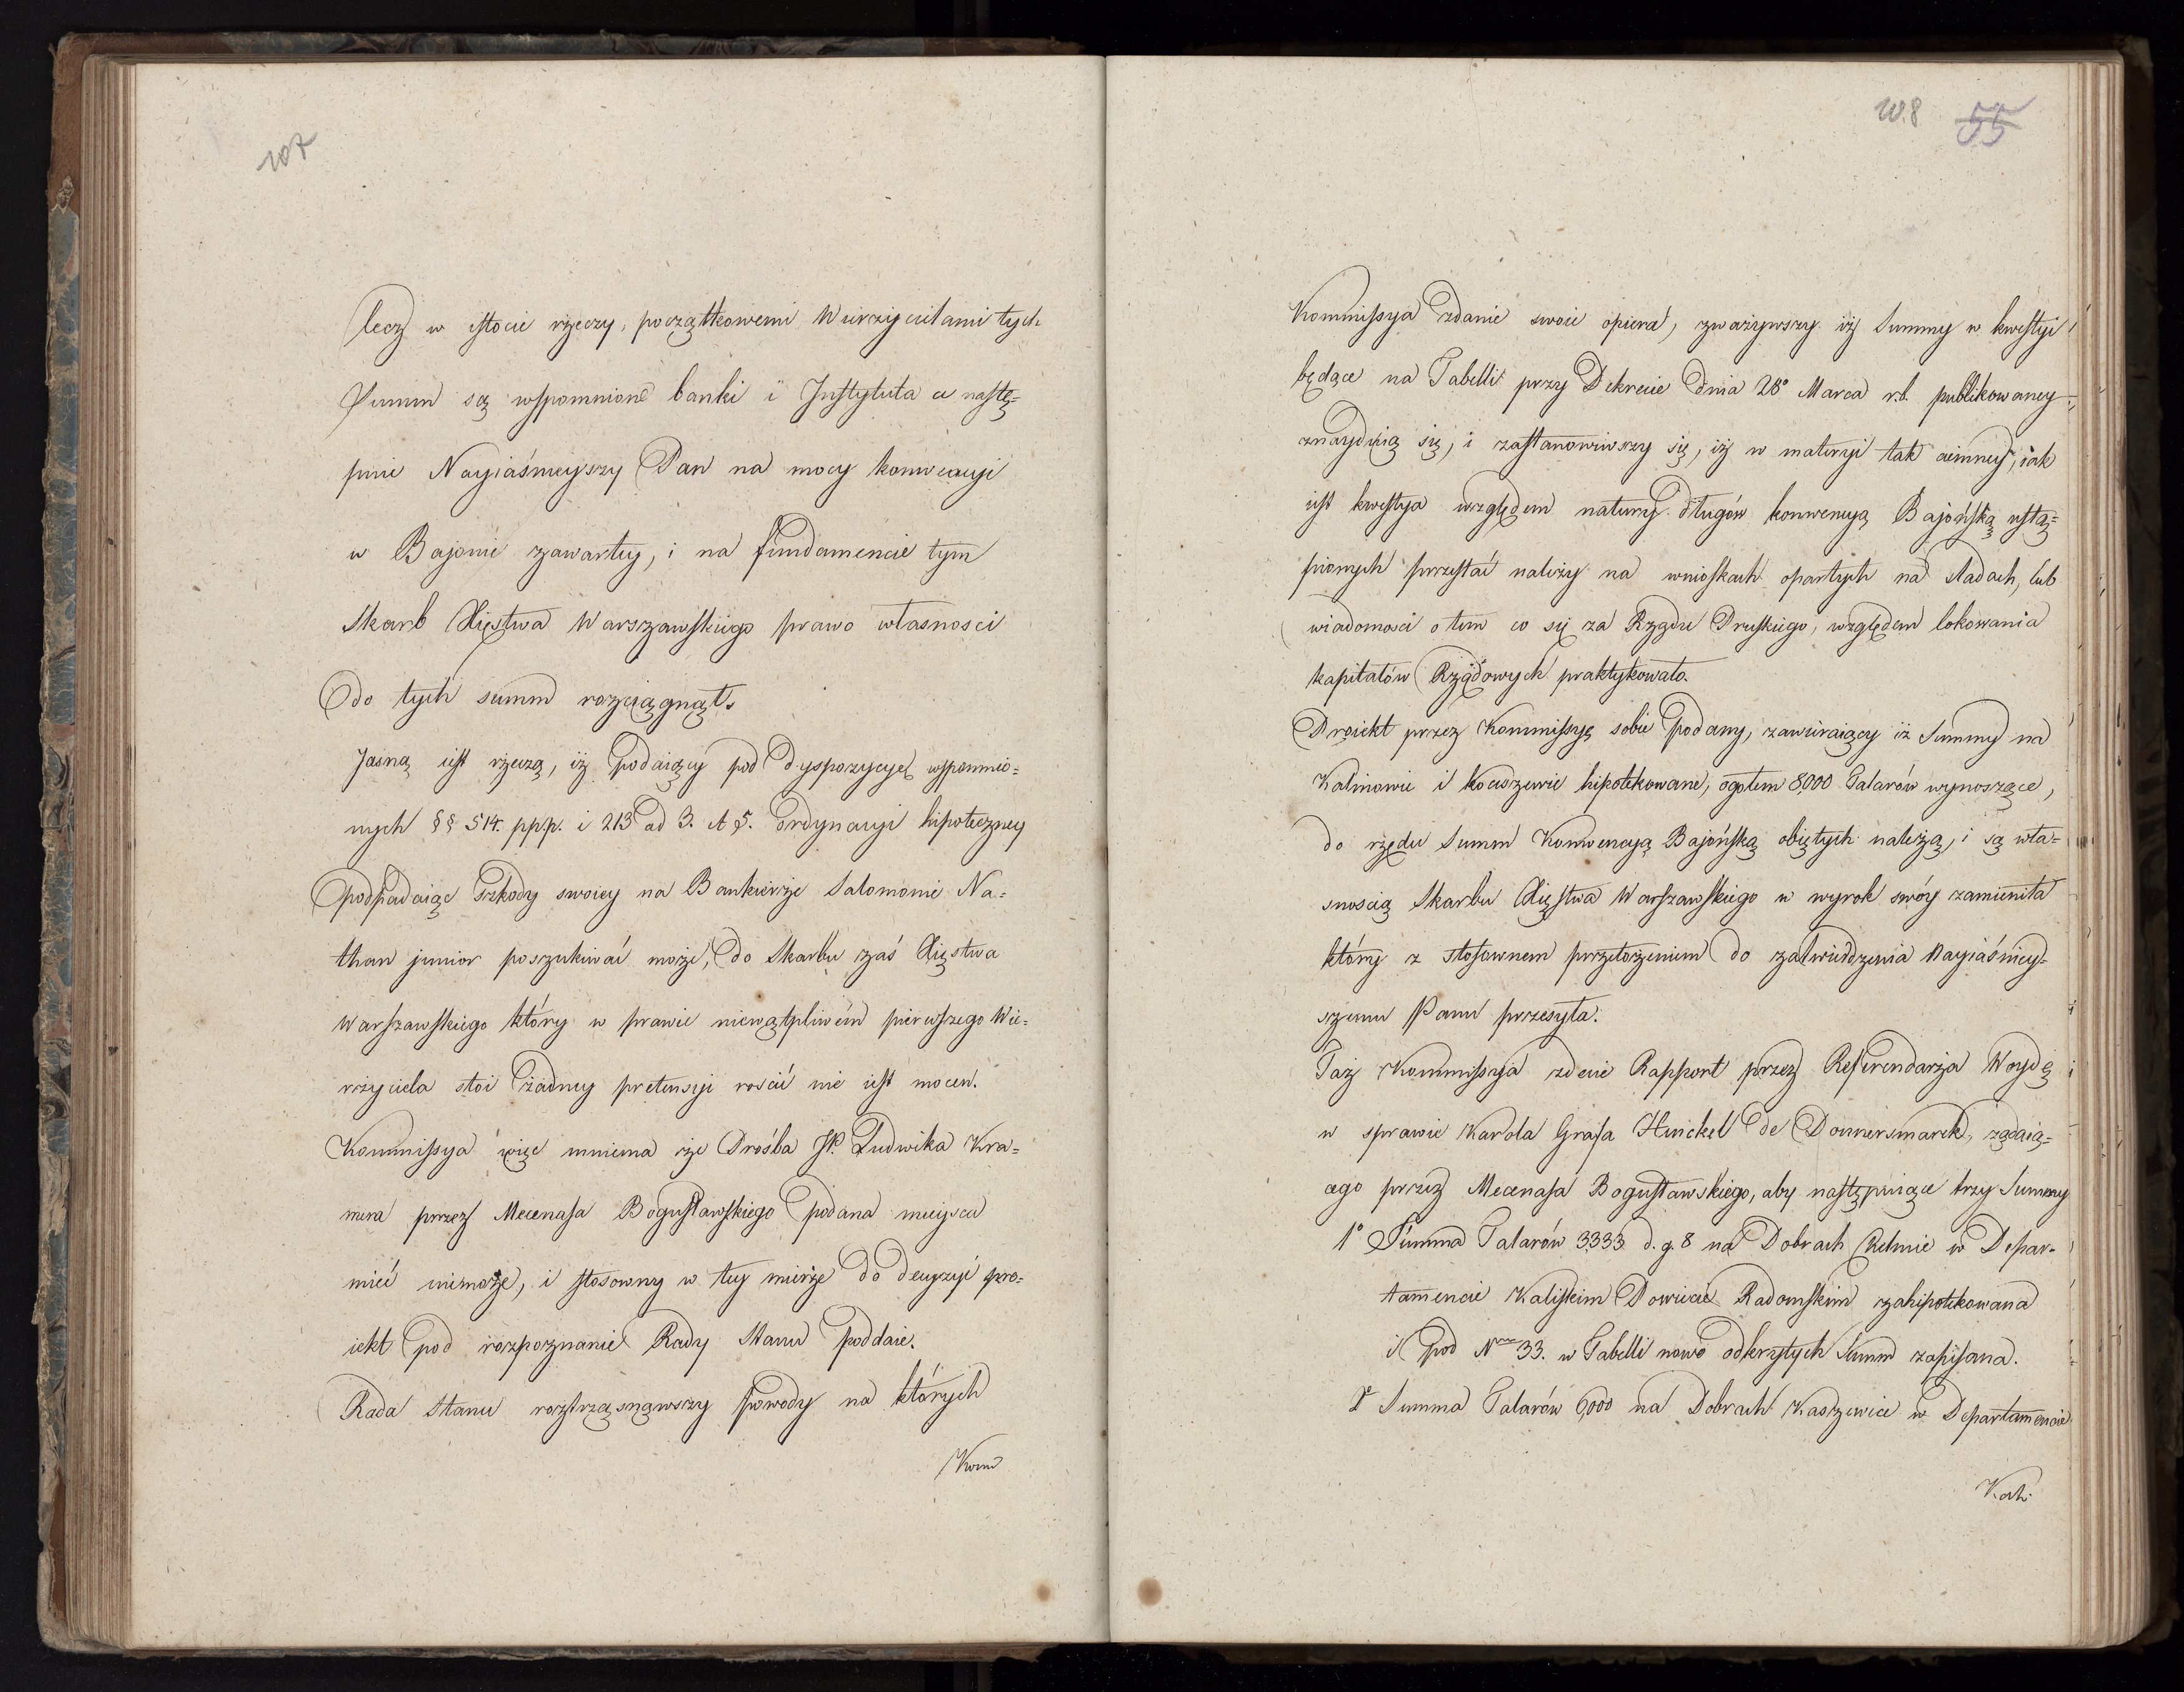 107
lecz w istocie rzeczy, początkowemi Wierzycielami tych
Summ są wspomnione banki i Instytuta a nastę=
pnie Nayiaśnieyszy Pan na mocy konwencyi
w Bajonie zawartey, i na fundamencie tym
Skarb Xięstwa Warszawskiego prawo własności
do tych summ rozciągnął.
Jasną iest rzeczą, iż podaiący pod dyspozycyę wspomnio=
nych §§ 514. ppp. i 213 ad 3. et 5. ordynacyi hipoteczney
podpadaiąc szkody swoiey na Bankierze Salomonie Na=
than junior poszukiwać może, do Skarbu zaś Xięstwa
Warszawskiego który w prawie niewątpliwém pierwszego Wie=
rzyciela stoi żadney pretensyi rościć nie iest mocen.
Kommissya więc mniema że Prośba JP. Ludwika Kra=
mera przez Mecenasa Bogusławskiego podana mieysca
mieć niemoże, i stosowny w tey mierze do decyzyi pro=
iekt pod rozpoznanie Rady Stanu poddaie.
Rada Stanu roztrząsnąwszy powody na których
Kom
108 55
Kommissya zdanie swoie opiera, zważywszy iż Summy w kwestyi
będące na Tabelli przy Dekrecie dnia 28° Marca r.b. publikowaney
znayduią się, i zastanowiwszy się, iż w materyi tak ciemney, iak
iest kwestya względem natury długów konwencyą Bajońską ustą=
pionych przestać należy na wnioskach opartych na śladach, lub
wiadomości o tem co się za Rządu Pruskiego, względem lokowania
kapitałów Rządowych praktykowało.
Proiekt przez Kommissyę sobie podany, zawieraiący iż Summy na
Kalinowie i Kociszewie hipotekowane, ogołem 8,000 Talarów wynoszące,
do rzędu Summ Konwencyą Bajońską obiętych należą, i są wła=
snością Skarbu Xięstwa Warszawskiego w wyrok swóy zamieniła
który z stosownem przełożeniem do zatwierdzenia Nayiaśniey=
szemu Panu przesyła.
Taż Kommissya zdaie Rapport przez Referendarza Woydę
w sprawie Karola Grafa Henckel de Donnersmarck, żądaią=
cego przez Mecenasa Bogusławskiego, aby następuiące trzy Summy
1° Summa Talarów 3333 d.g. 8 na Dobrach Rełmie w Depar=
tamencie Kaliskim Powiecie Radomskim zahipotekowana
i pod Nrem 33. w Tabelli nowo odkrytych Summ zapisana.
2° Summa Talarów 6,000 na Dobrach Kaszewice w Departamencie
Kali